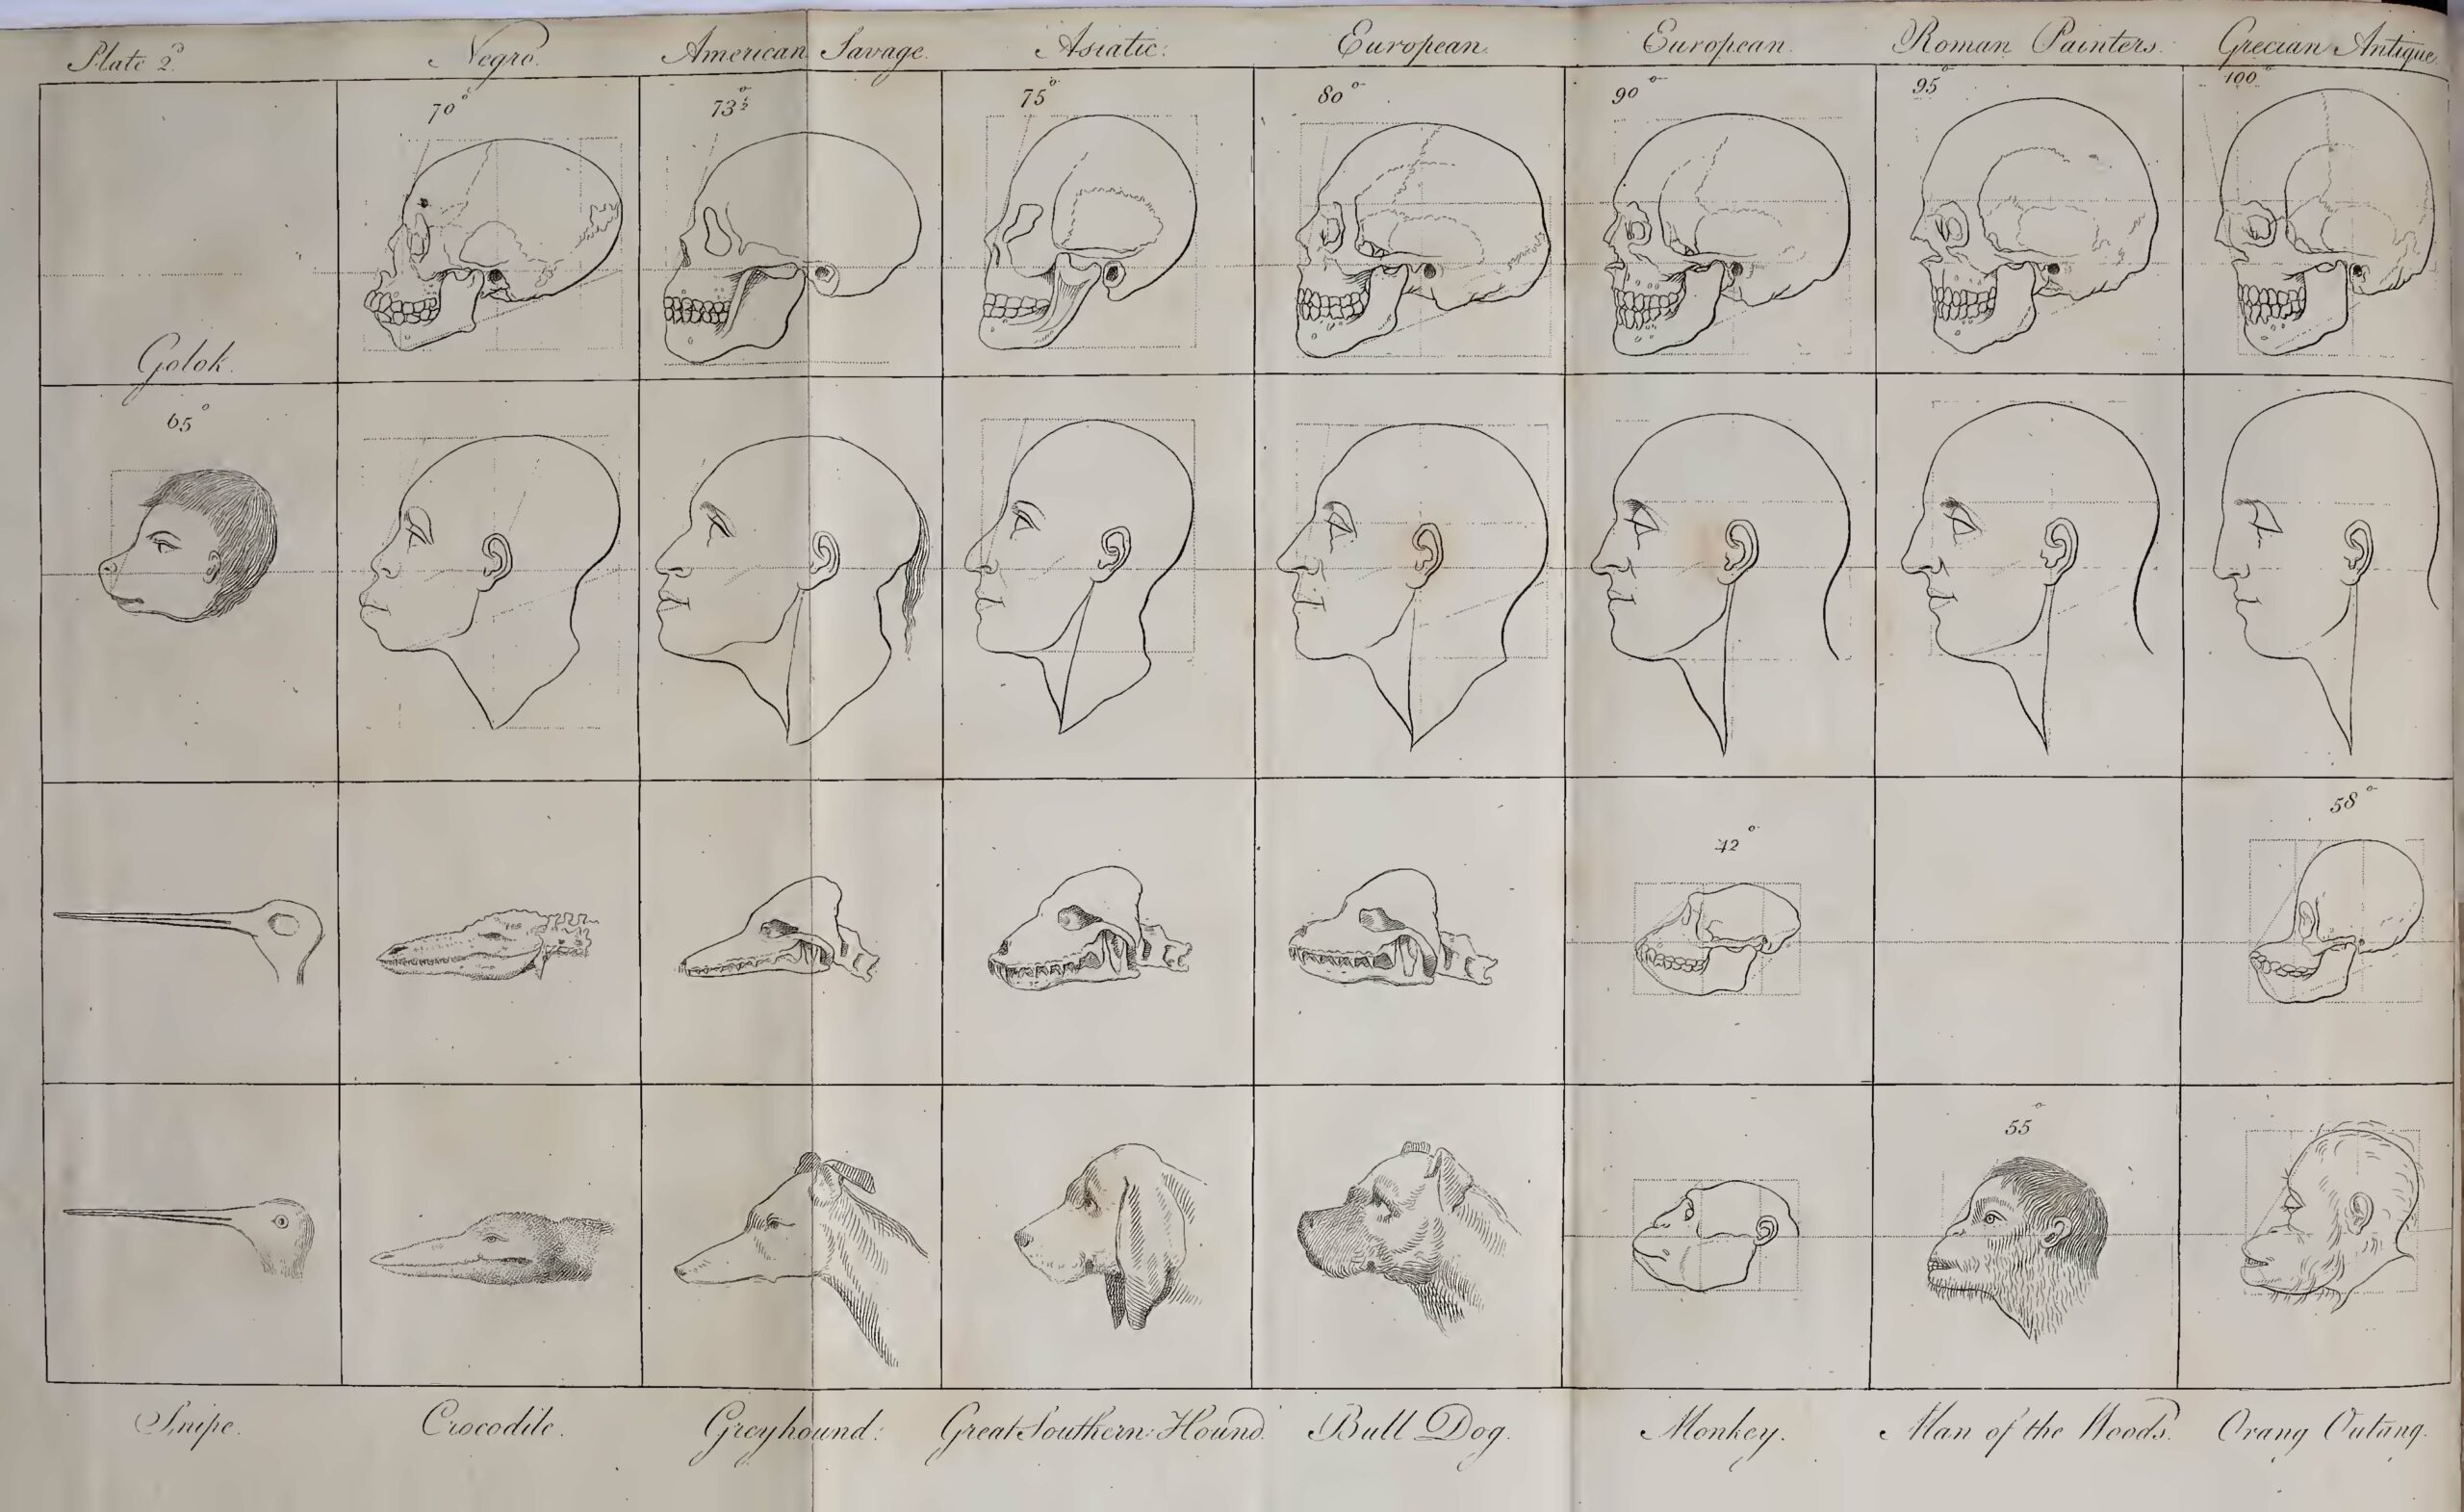 Plate 2.d Negro. American Savage. Asiatic: European. European. Roman Painters. Grecian Antique.
70° 73½° 75° 80° 90° 95° 100°
Golok.
65°
42° 58°
55°
Snipe. Crocodile. Greyhound: Great Southern Hound. Bull Dog. Monkey. Man of the Woods. Orang Outang.